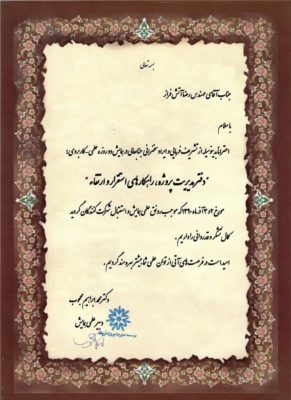 بسمه تعالی
جناب آقای مهندس رضا آتش فراز
با سلام
احتراماً بدینوسیله از تشریف فرمایی و ایراد سخنرانی جنابعالی در همایش دو روزه علمی - کاربردی:
"دفتر مدیریت پروژه، راهکارهای استقرار و ارتقاء"
مورخ ۲ و ۳ آذرماه ۱۳۹۰ که موجب رونق علمی همایش و استقبال شرکت کنندگان گردید
کمال تشکر و قدردانی را داریم.
امید است در فرصت های آتی از توان علمی شما بیشتر بهره مند گردیم.
دکتر محمد ابراهیم محجوب
دبیر علمی همایش